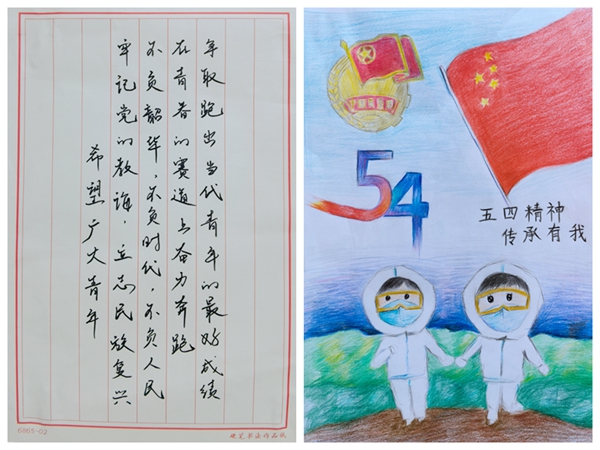 希望广大青年
牢记党的教诲，立志民族复兴
不负韶华，不负时代，不负人民
在青春的赛道上奋力奔跑
争取跑出当代青年的最好成绩
硬笔书法作品纸
54
五四精神
传承有我